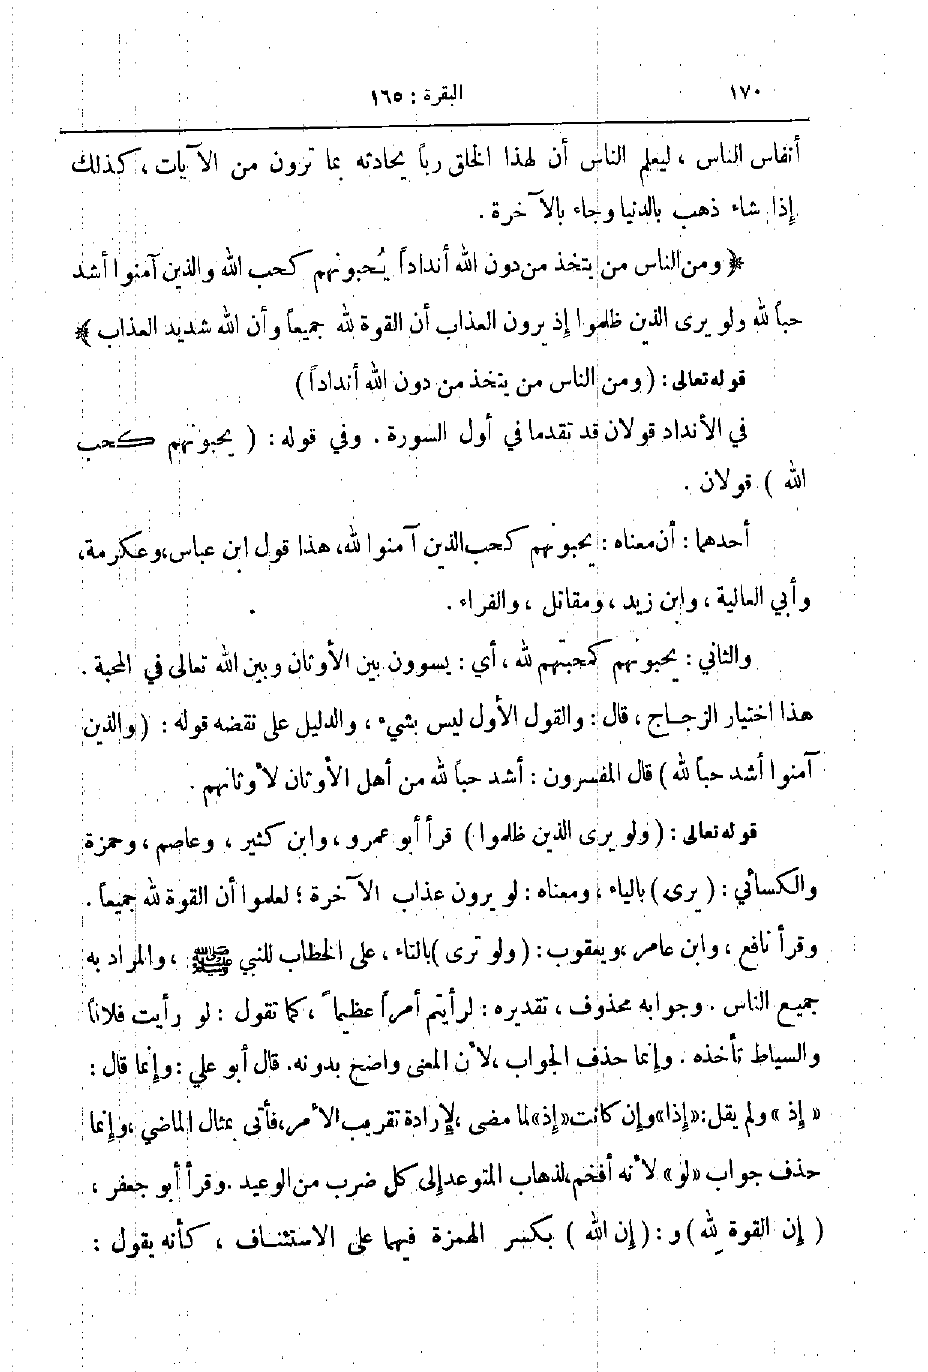 ١٧٠
البقرة : ١٦٥
أنفاس الناس ، ليعلم الناس أن لهذا الخلق رباً يحادثه بما ترون من الآيات ، كذلك
إذا شاء ذهب بالدنيا وجاء بالآخرة .
﴿ ومن الناس من يتخذ من دون الله أنداداً يُحبونهم كحب الله والذين آمنوا أشد
حباً لله ولو يرى الذين ظلموا إذ يرون العذاب أن القوة لله جميعاً وأن الله شديد العذاب ﴾
قوله تعالى : ( ومن الناس من يتخذ من دون الله أنداداً )
في الأنداد قولان قد تقدما في أول السورة . وفي قوله : ( يحبونهم كحب
الله ) قولان .
أحدهما : أن معناه : يحبونهم كحب الذين آمنوا لله، هذا قول ابن عباس، وعكرمة،
وأبي العالية ، وابن زيد ، ومقاتل ، والفراء .
والثاني : يحبونهم كمحبتهم لله ، أي : يسوون بين الأوثان وبين الله تعالى في المحبة .
هذا اختيار الزجاج ، قال : والقول الأول ليس بشيء ، والدليل على نقضه قوله : ( والذين
آمنوا أشد حباً لله ) قال المفسرون : أشد حباً لله من أهل الأوثان لأوثانهم .
قوله تعالى : ( ولو يرى الذين ظلموا ) قرأ أبو عمرو ، وابن كثير ، وعاصم ، وحمزة
والكسائي : ( يرى ) بالياء ، ومعناه : لو يرون عذاب الآخرة ؛ لعلموا أن القوة لله جميعاً .
وقرأ نافع ، وابن عامر ، ويعقوب : ( ولو ترى ) بالتاء ، على الخطاب للنبي ﷺ ، والمراد به
جميع الناس . وجوابه محذوف ، تقديره : لرأيتم أمراً عظيماً ، كما تقول : لو رأيت فلاناً
والسياط تأخذه . وإنما حذف الجواب ، لأن المعنى واضح بدونه. قال أبو علي : وإنما قال :
« إذ » ولم يقل : «إذا» وإن كانت «إذ» لما مضى ، لإرادة تقريب الأمر، فأتى بمثال الماضي ، وإنما
حذف جواب «لو» لأنه أفخم، لذهاب المتوعد إلى كل ضرب من الوعيد . وقرأ أبو جعفر ،
( إن القوة لله ) و : ( إن الله ) بكسر الهمزة فيهما على الاستئناف ، كأنه يقول :